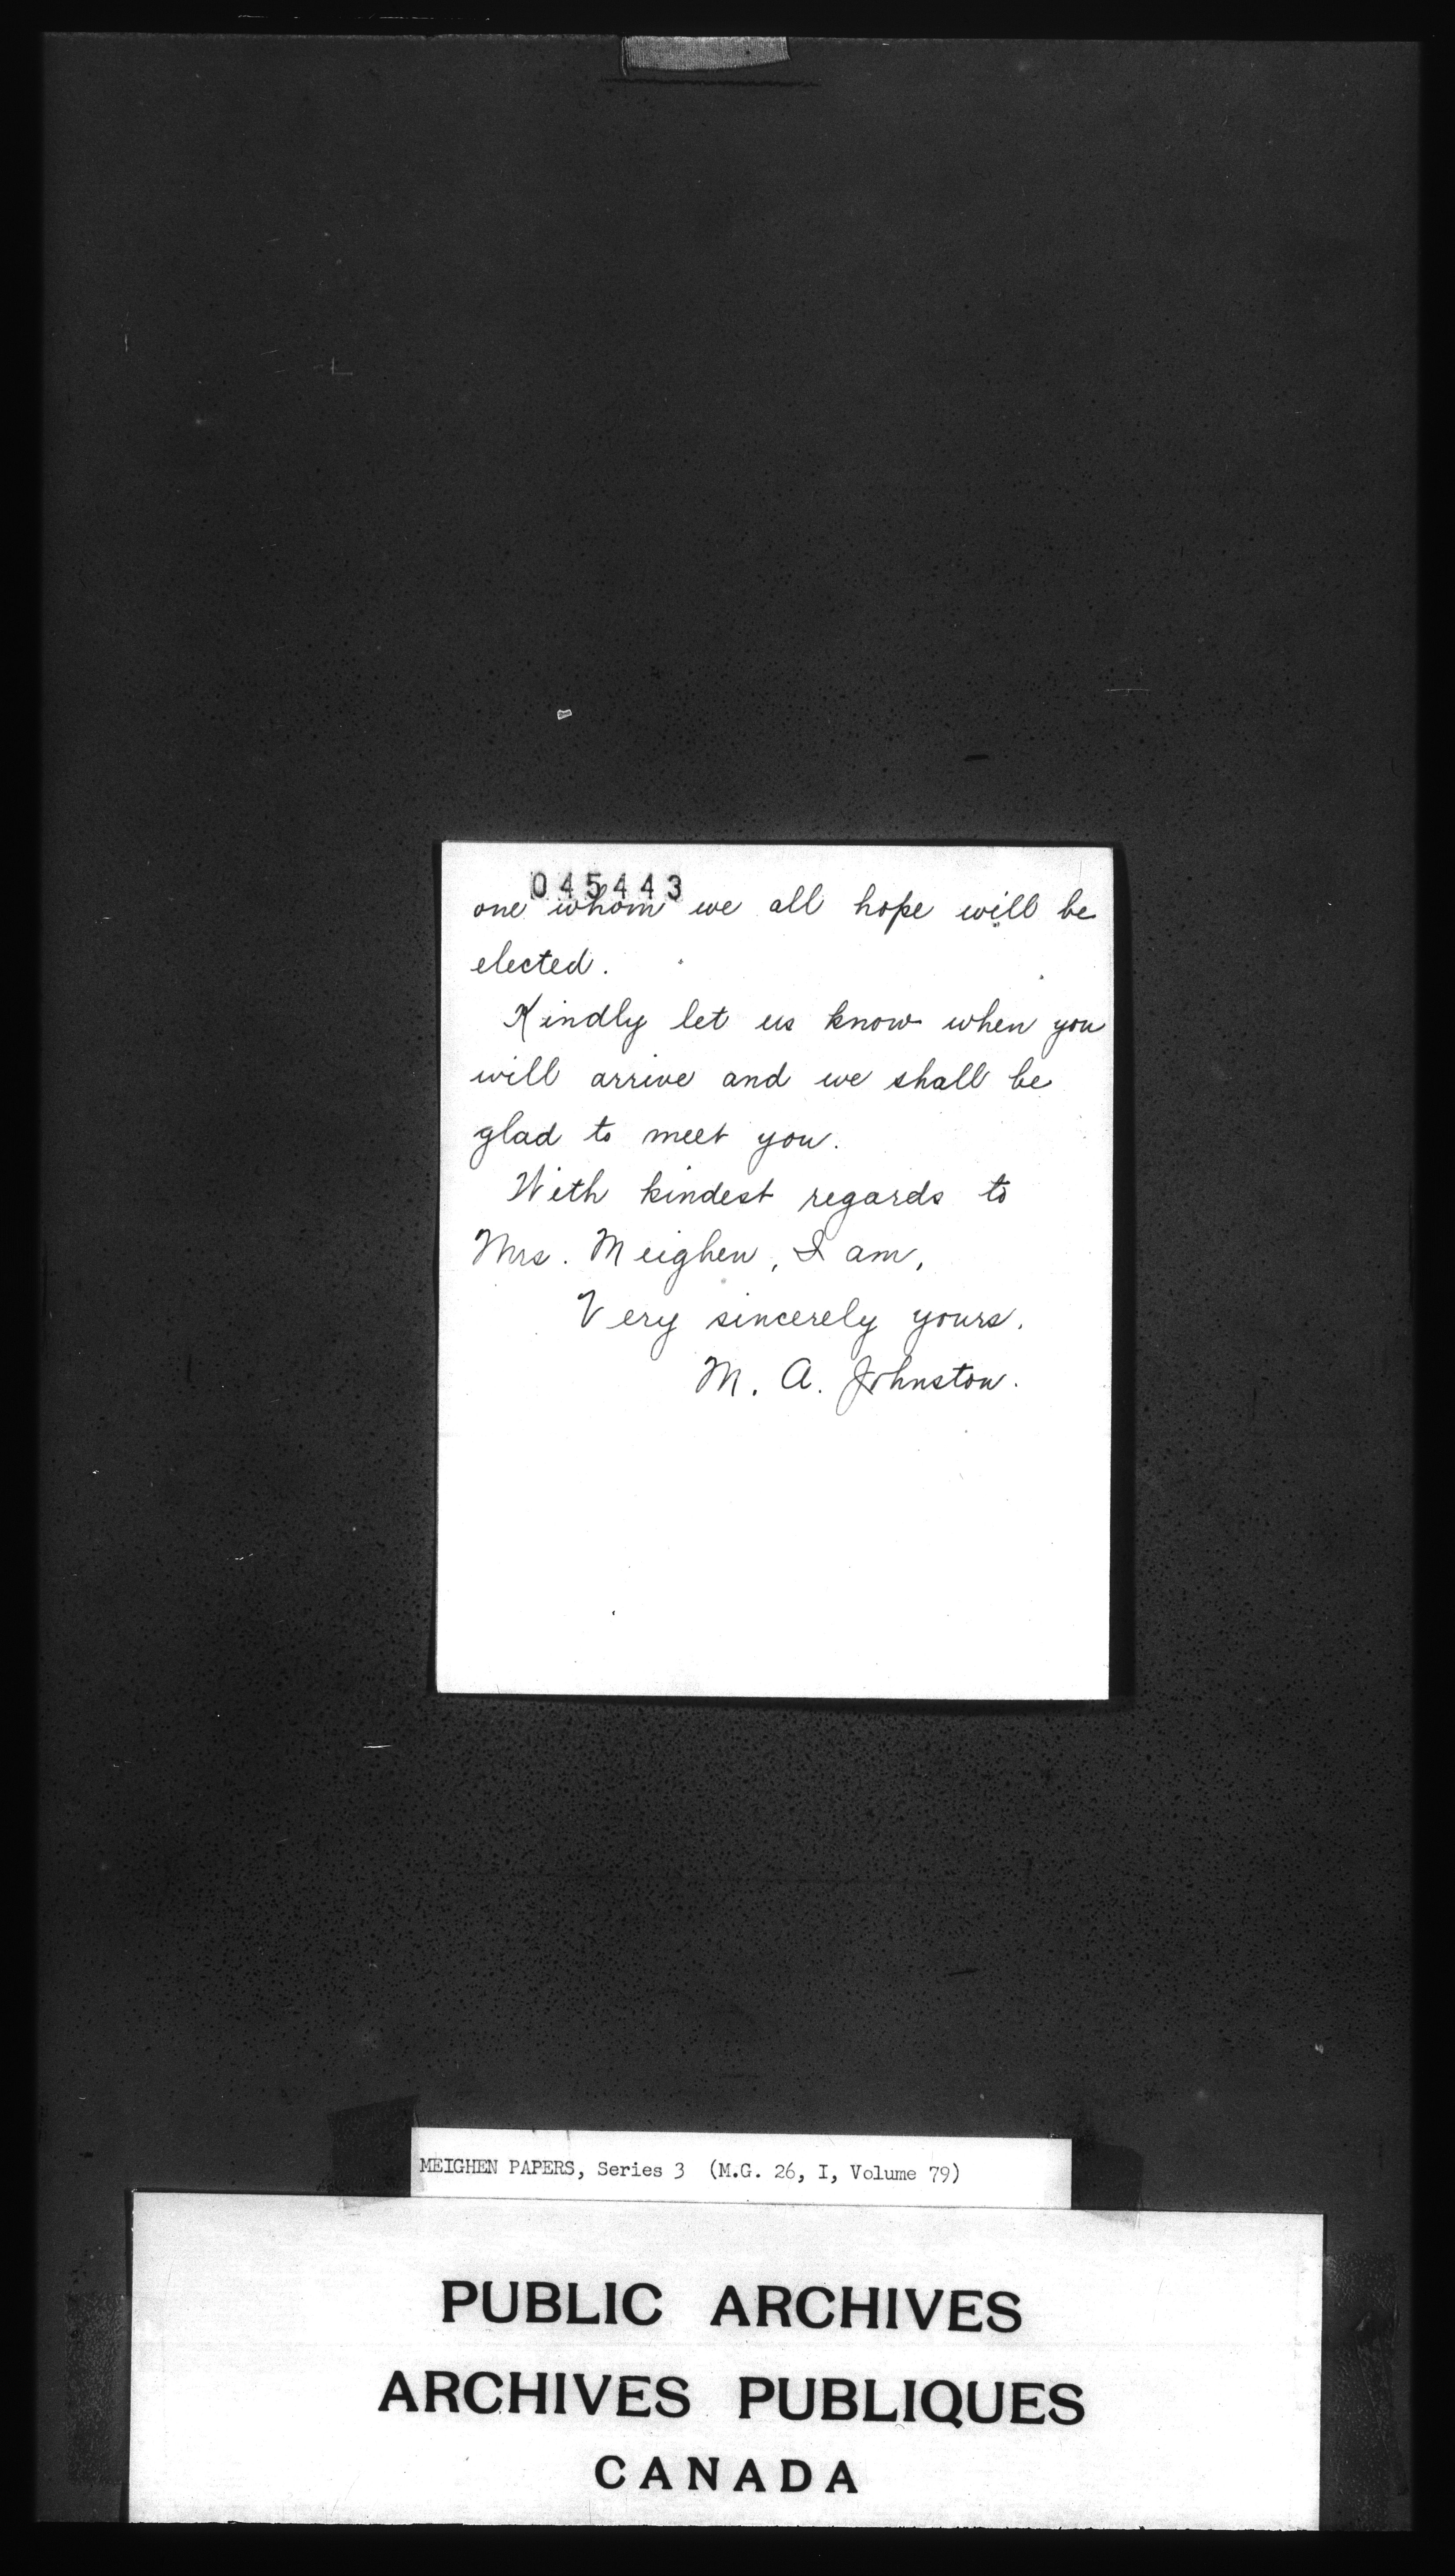 045443
one whom we all hope will be
elected.
Kindly let us know when you
will arrive and we shall be
glad to meet you.
With kindest regards to
Mrs. Meighen, I am,
Very sincerely yours.
M. A. Johnston.
MEIGHEN PAPERS, Series 3 (M.G. 26, I, Volume 79)
PUBLIC ARCHIVES
ARCHIVES PUBLIQUES
CANADA